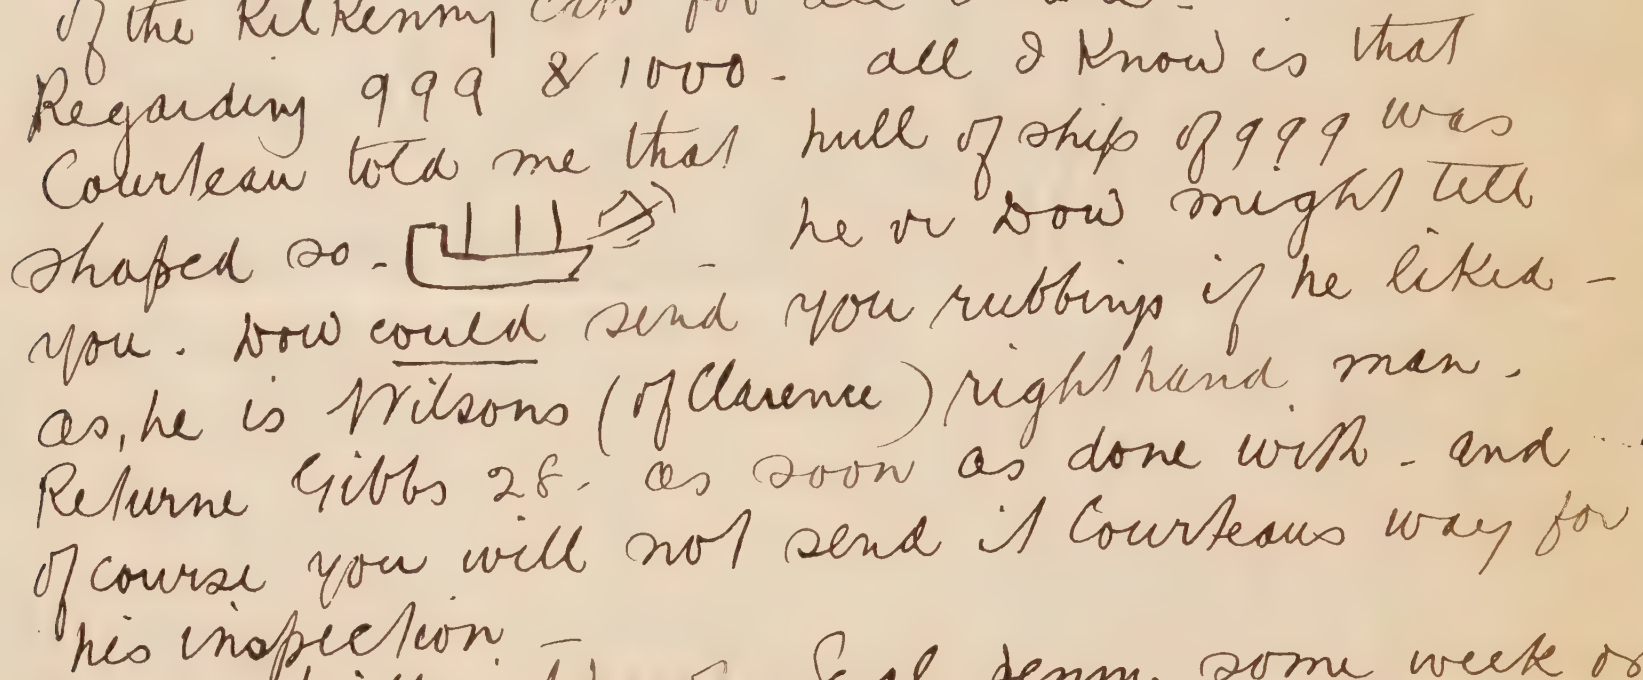 of the Kilkenny
Regarding 999 & 1000 - all I Know is that
Courteau told me that hull of ship of 999 was
shaped so - - he or Dow might tell
you. Dow could send you rubbings if he liked -
as, he is Wilsons (of Clarence) right hand man.
Returne Gibbs 28. as soon as done with - and
of course you will not send it Courteaus way for
his inspection -
some week or